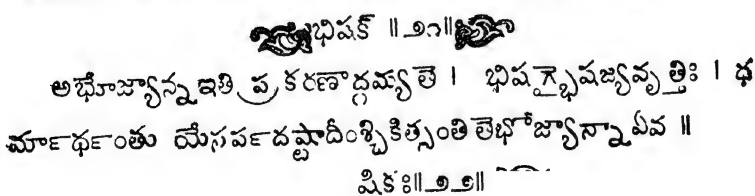 భిషక్ ॥ ౨౧॥
అభోజ్యాన్న ఇతి ప్రకరణాద్గమ్యతె । భిషగ్భైషజ్యవృత్తిః । ధ
మా౯థ౯ంతు యేసప౯దష్టాదీంశ్చికిత్సంతి తెభోజ్యాన్నాఏవ ॥
షికః॥౨౨॥